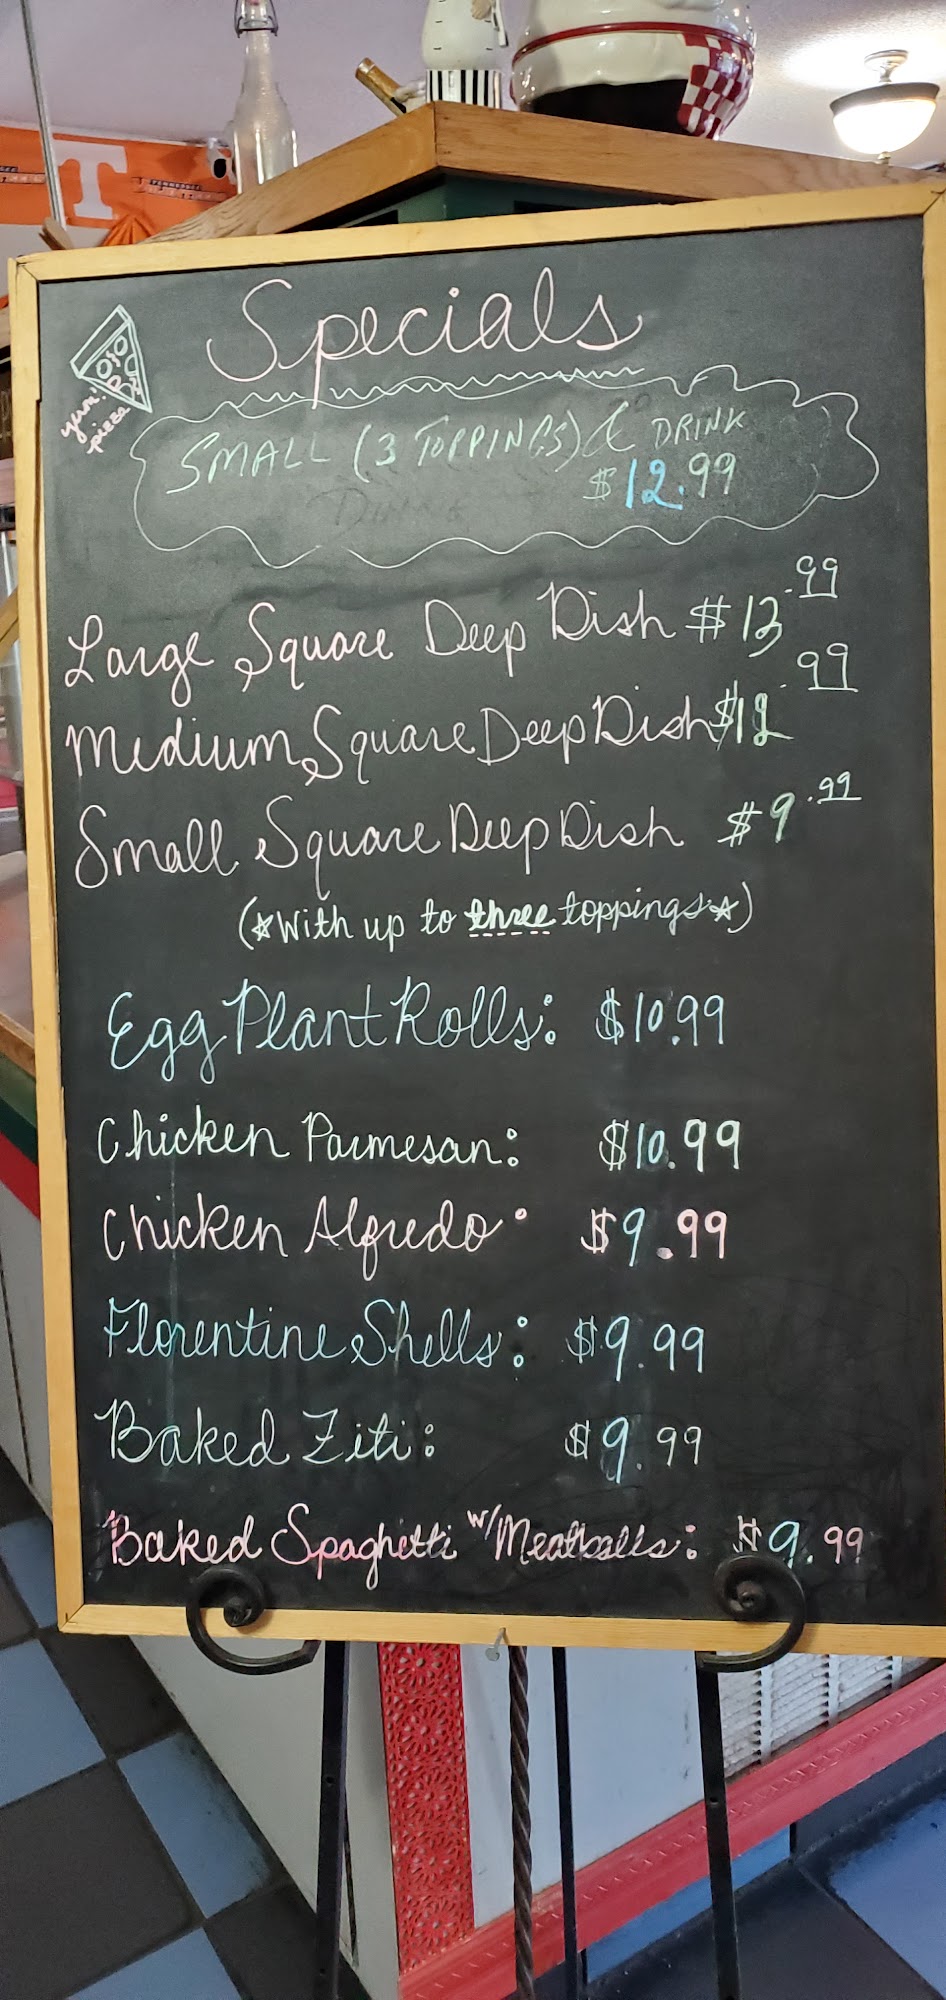 T
Specials
yum!
pizza
SMALL (3 TOPPINGS) & DRINK
$12.99
Large Square Deep Dish $13.99
Medium Square Deep Dish $12.99
Small Square Deep Dish $9.99
(★With up to three toppings★)
Egg Plant Rolls: $10.99
Chicken Parmesan: $10.99
Chicken Alfredo: $9.99
Florentine Shells: $9.99
Baked Ziti: $9.99
Baked Spaghetti w/Meatballs: $9.99